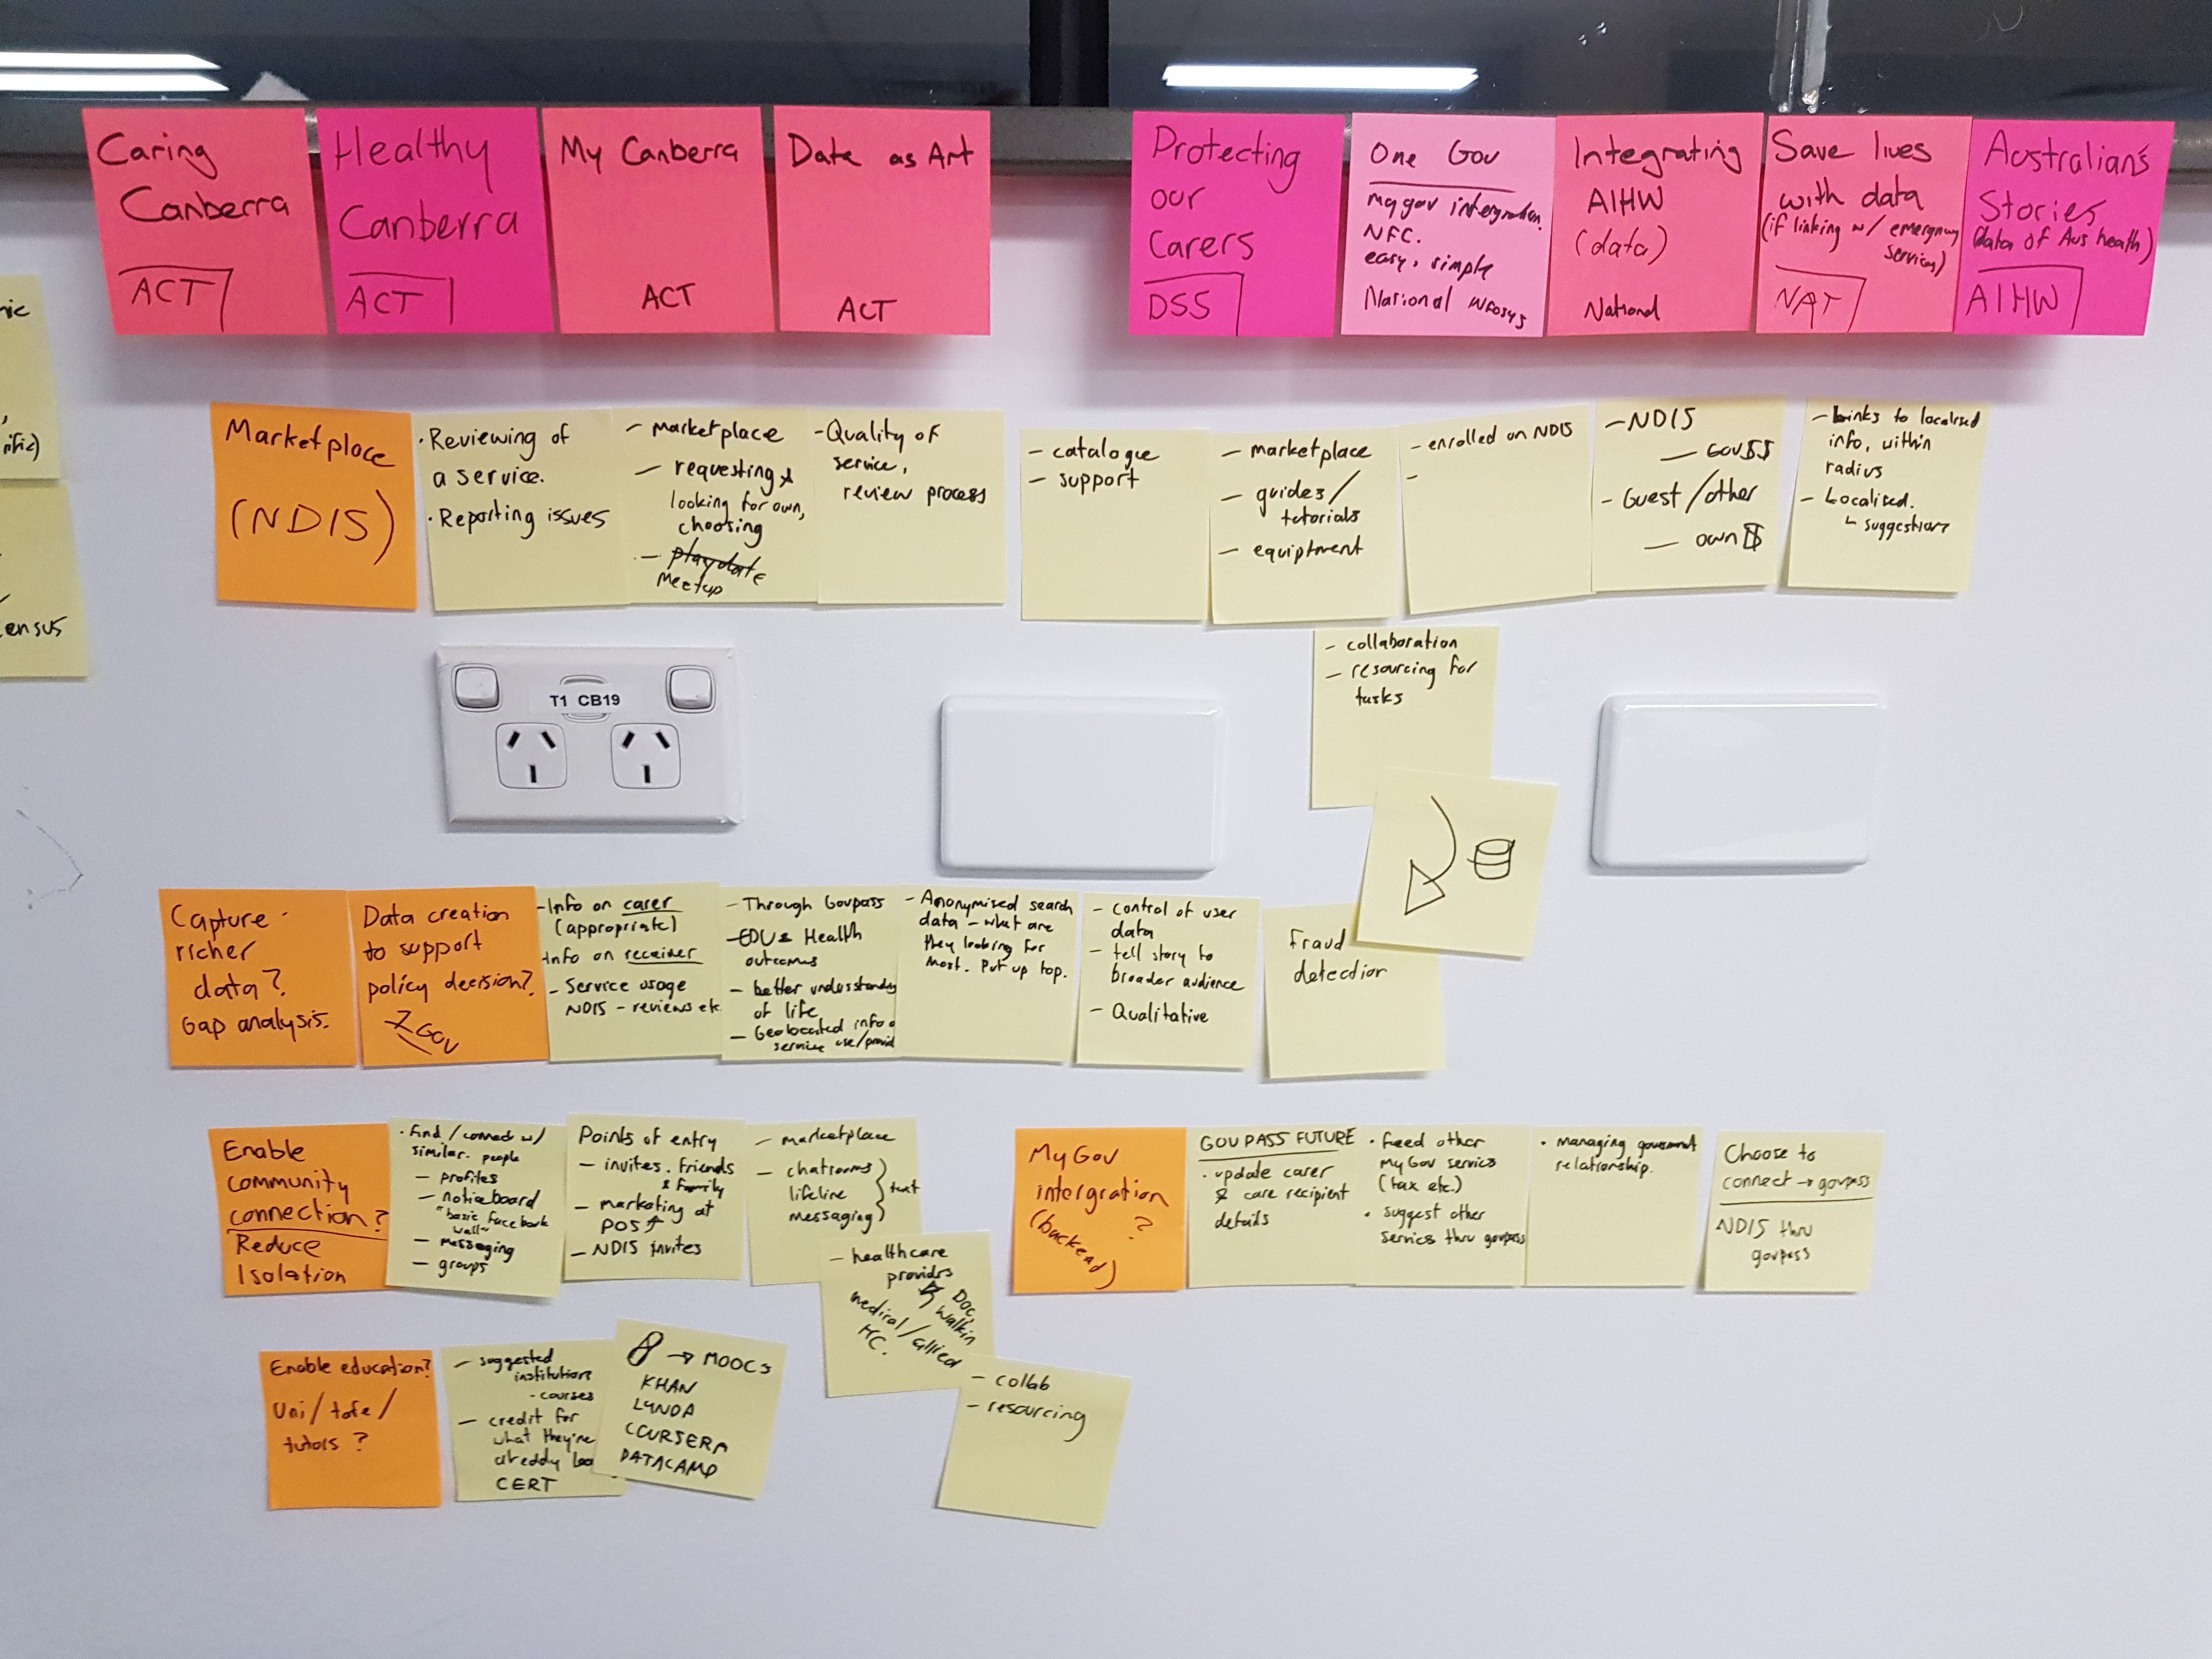 Caring
Canberra
ACT
Healthy
Canberra
ACT
My Canberra
ACT
Data as Art
ACT
Protecting
our
Carers
DSS
One Gov
mygov intergration.
NFC.
easy, simple
National INFOSYS
Integrating
AIHW
(data)
National
Save lives
with data
(if linking w/ emergency
services)
NAT
Australian's
Stories
(data of Aus health)
AIHW
ensus
Marketplace
(NDIS)
• Reviewing of
a service.
• Reporting issues
- marketplace
- requesting &
looking for own,
choosing
- playdate
Meetup
- Quality of
service,
review process
- catalogue
- support
- marketplace
- guides/
tutorials
- equiptment
- enrolled on NDIS
-
- NDIS
- GOV$$
- Guest/other
- own $
- Links to localised
info, within
radius
- Localised.
↳ suggestions
- collaboration
- resourcing for
tasks
T1 CB19
Capture
richer
data?
Gap analysis.
Data creation
to support
policy decision?
GOV
- Info on carer
(appropriate)
- Info on receiver
- Service usage
NDIS - reviews etc
- Through Govpass
- EDU & Health
outcomes
- better understanding
of life
- Geolocated info of
service use/provid
- Anonymised search
data - what are
they looking for
most. Put up top.
- control of user
data
- tell story to
broader audience
- Qualitative
Fraud
detection
Enable
community
connection?
Reduce
Isolation
• find/connect w/
similar people
- profiles
- noticeboard
"basic facebook
wall"
- messaging
- groups
Points of entry
- invites. friends
& family
- marketing at
POS
- NDIS invites
- marketplace
- chatrooms
lifeline
messaging
text
- healthcare
providers
Doc,
walkin
medical/allied
HC.
- collab
- resourcing
MyGov
intergration
?
(backend)
GOVPASS FUTURE
• update carer
& care recipient
details
• feed other
MyGov service
(tax etc.)
• suggest other
services thru govpass
• managing government
relationship.
Choose to
connect → govpass
NDIS thru
govpass
Enable education?
Uni/tafe/
tutors?
- suggested
institutions
- courses
- credit for
what they're
already
CERT
→ MOOCs
KHAN
LYNDA
COURSERA
DATACAMP